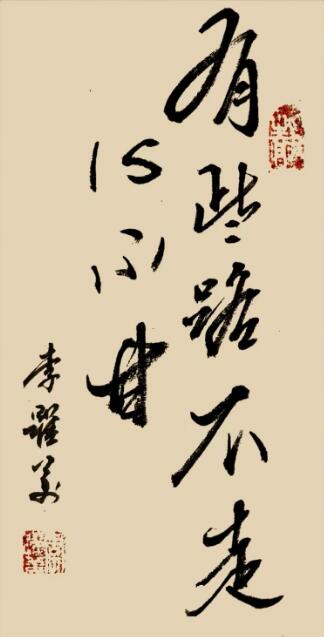 有些路不走
心不甘
李耀美